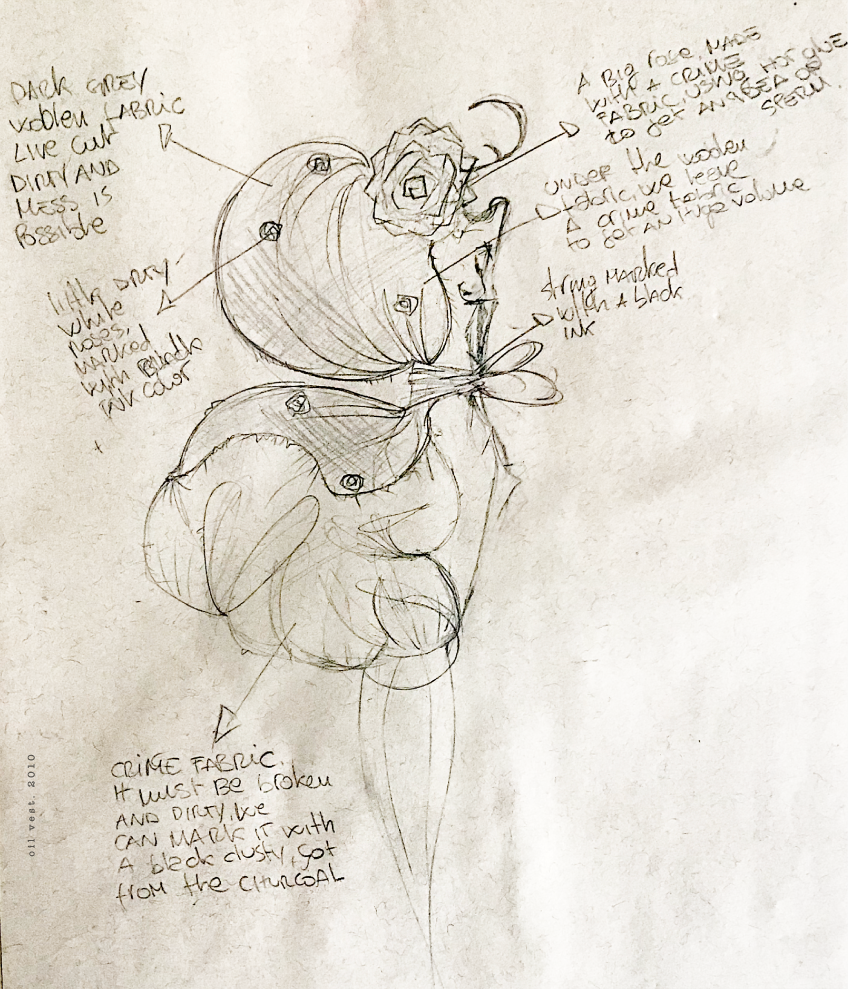 DARK GREY
woolen FABRIC
Live cut
DIRTY AND
Mess is
Possible
A Big rose, MADE
with A CRIME
FABRIC, USING HOT GLUE
to get AN IDEA OF
SPERM.
UNDER the woolen
fabric, we leave
A crime fabric
to get an huge volume
little DIRTY
white
roses,
MARked
with Black
ink color
string MARKED
with A black
ink
CRIME FABRIC.
It must BE broken
AND DIRTY, we
CAN MARK IT with
A black dusty, got
from the CHURCOAL
oil vest. 2010